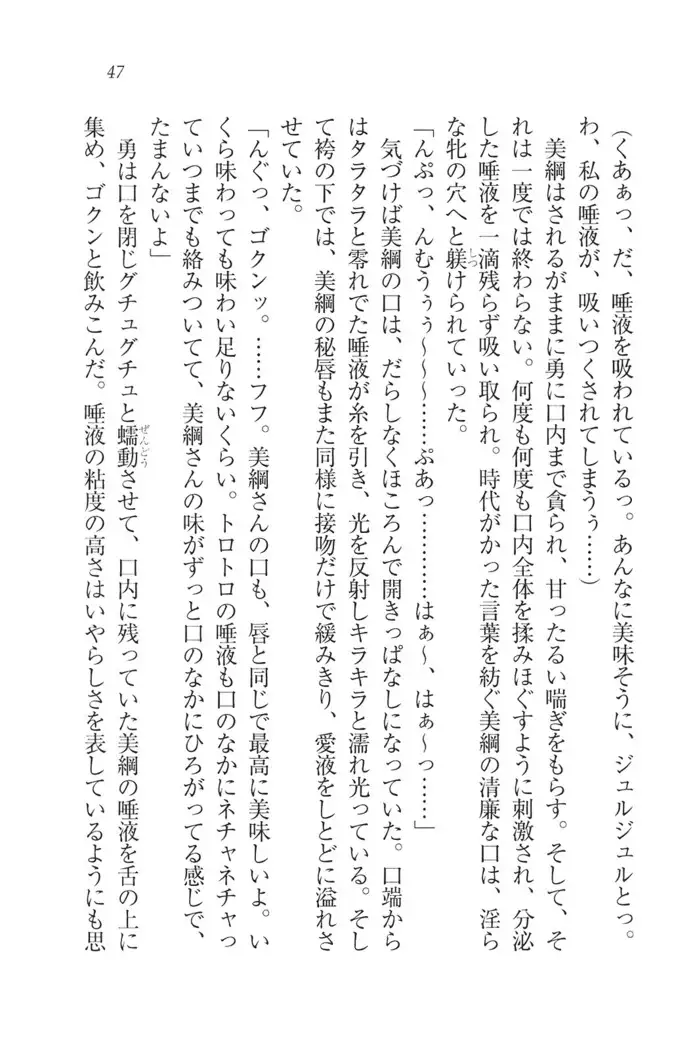 47
(くあぁっ、だ、唾液を吸われているっ。あんなに美味そうに、ジュルジュルとっ。
わ、私の唾液が、吸いつくされてしまうぅ……)
美綱はされるがままに勇に口内まで貪られ、甘ったるい喘ぎをもらす。そして、そ
れは一度では終わらない。何度も何度も口内全体を揉みほぐすように刺激され、分泌
した唾液を一滴残らず吸い取られ。時代がかった言葉を紡ぐ美綱の清廉な口は、淫ら
な牝の穴へと躾けられていった。
「んぷっ、んむうぅぅ〜〜〜……ぷあっ…………はぁ〜、はぁ〜っ……」
気づけば美綱の口は、だらしなくほころんで開きっぱなしになっていた。口端から
はタラタラと零れでた唾液が糸を引き、光を反射しキラキラと濡れ光っている。そし
て袴の下では、美綱の秘唇もまた同様に接吻だけで緩みきり、愛液をしとどに溢れさ
せていた。
「んぐっ、ゴクンッ。……フフ。美綱さんの口も、唇と同じで最高に美味しいよ。い
くら味わっても味わい足りないくらい。トロトロの唾液も口のなかにネチャネチャっ
ていつまでも絡みついてて、美綱さんの味がずっと口のなかにひろがってる感じで、
たまんないよ」
勇は口を閉じグチュグチュと蠕動させて、口内に残っていた美綱の唾液を舌の上に
集め、ゴクンと飲みこんだ。唾液の粘度の高さはいやらしさを表しているようにも思